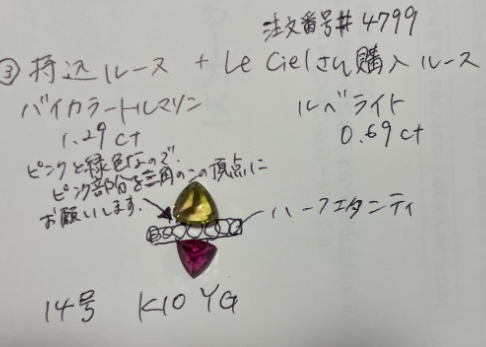 注文番号#4799
③持込ルース + Le Cielさん購入ルース
バイカラートルマリン ルベライト
1.29ct 0.69ct
ピンクと緑色なので、
ピンク部分を三角のこの頂点に
お願いします。
ハーフエタニティ
14号 K10 YG